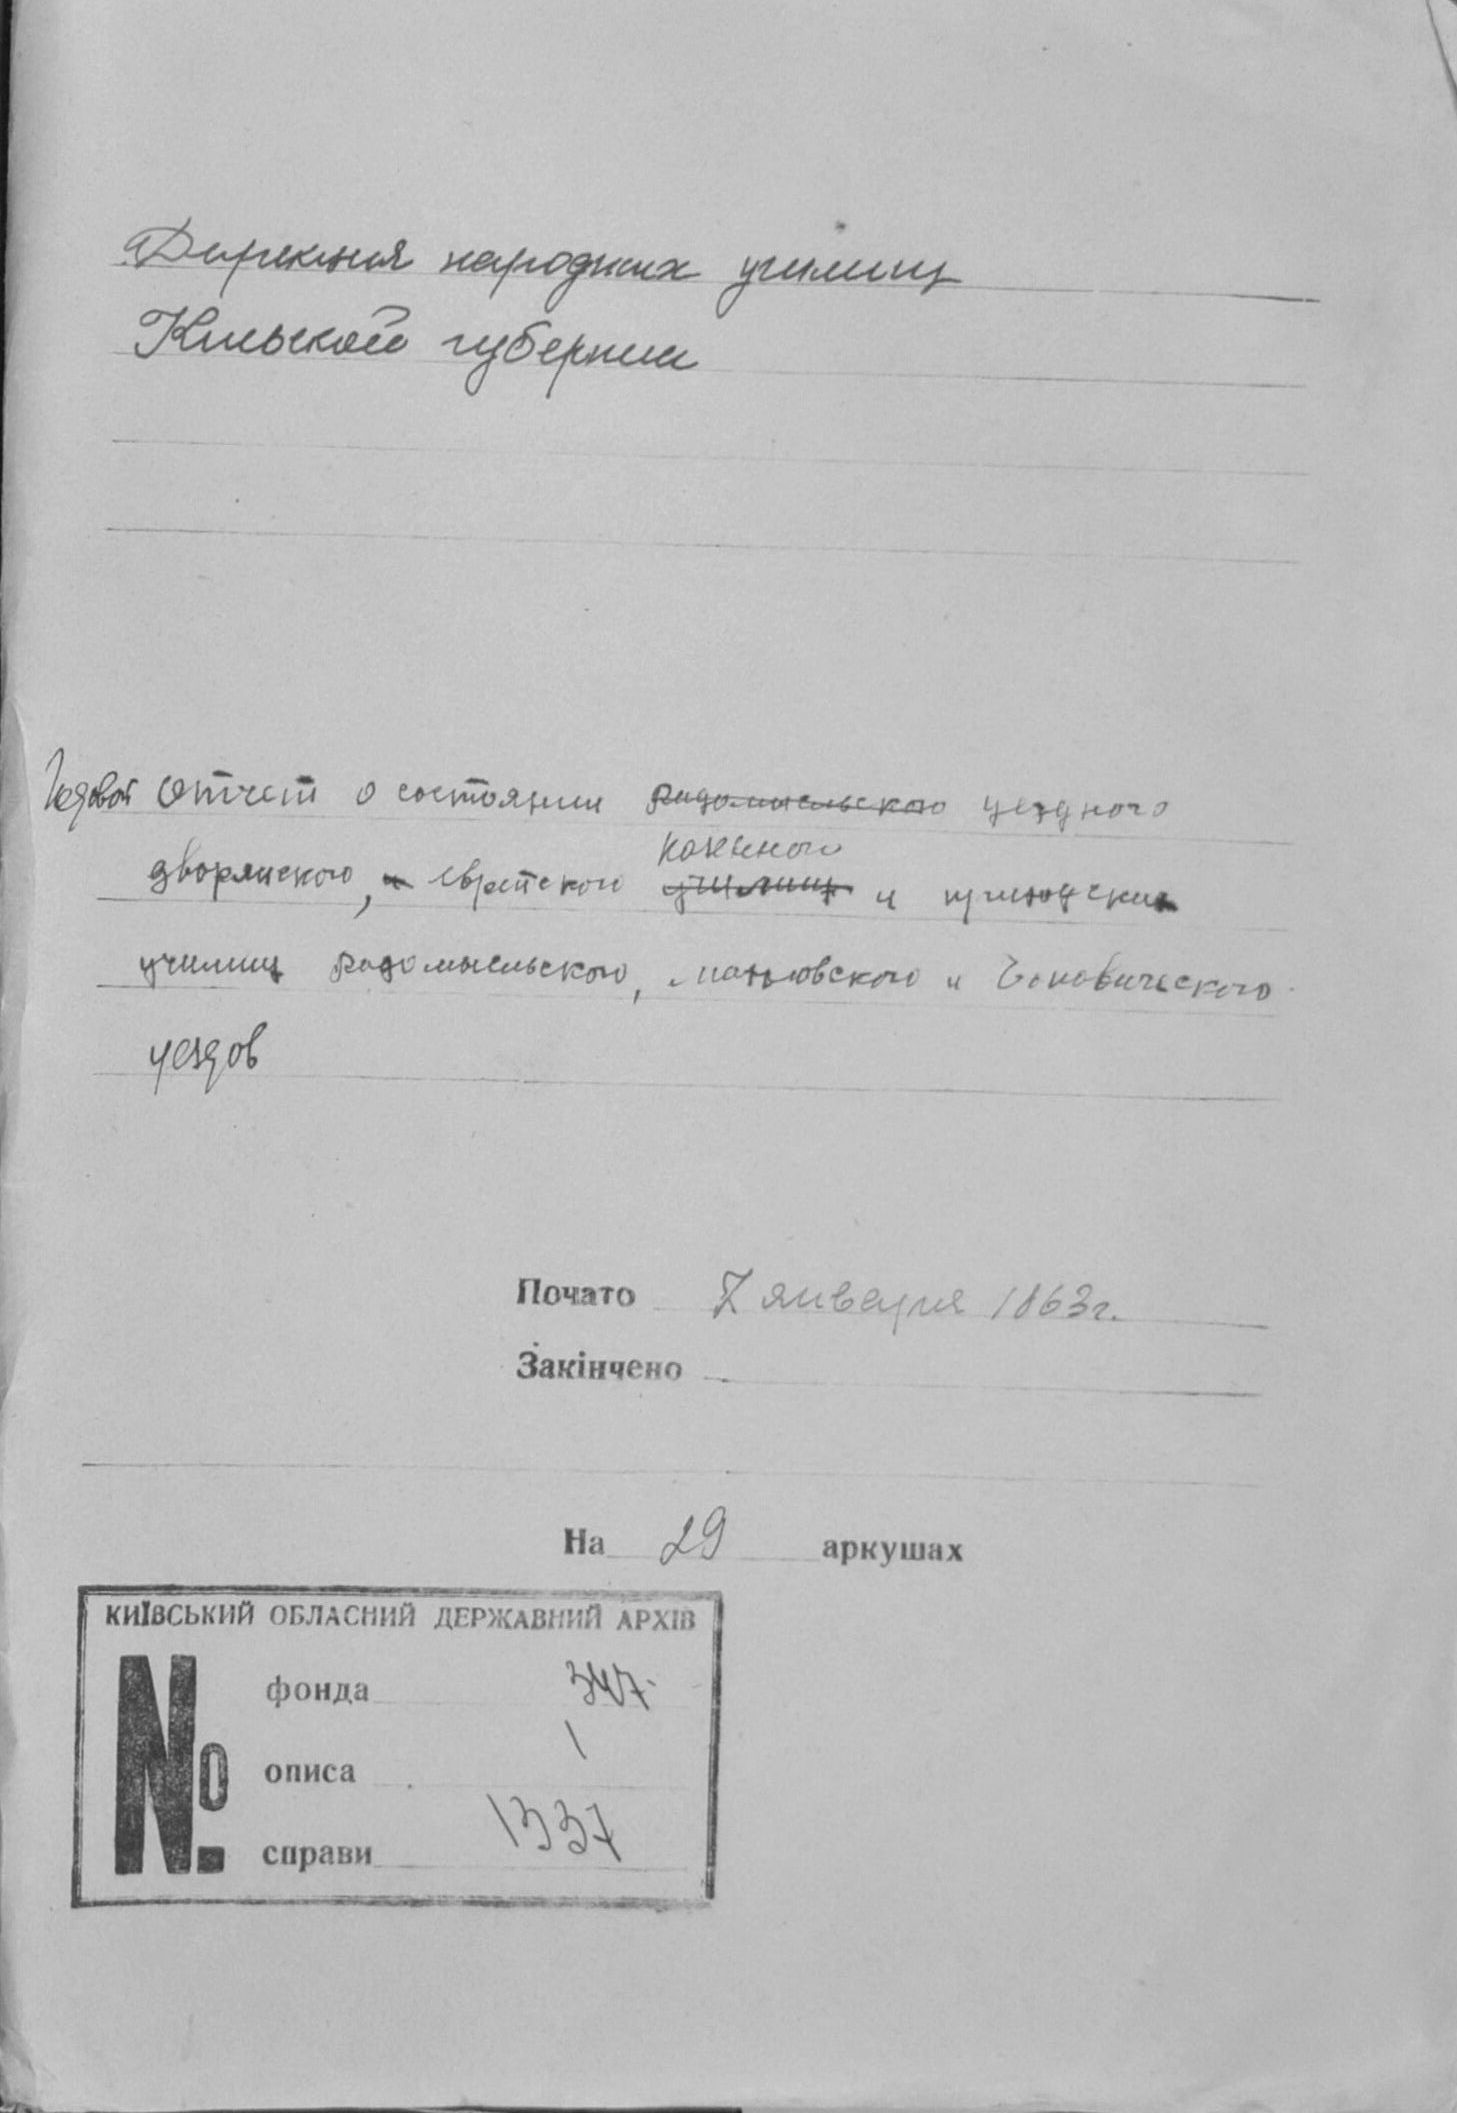 Дирекция народных училищ
Киевской губернии
Годовой Отчет о состоянии радомысльского уездного
казенного
дворянского, и еврейского училищ и приходских
училищ радомысльского, и
уездов
Почато 7 января 1863 г.
Закінчено
На 29 аркушах
КИЇВСЬКИЙ ОБЛАСНИЙ ДЕРЖАВНИЙ АРХІВ
№ фонда 347
описа 1
справи 1337